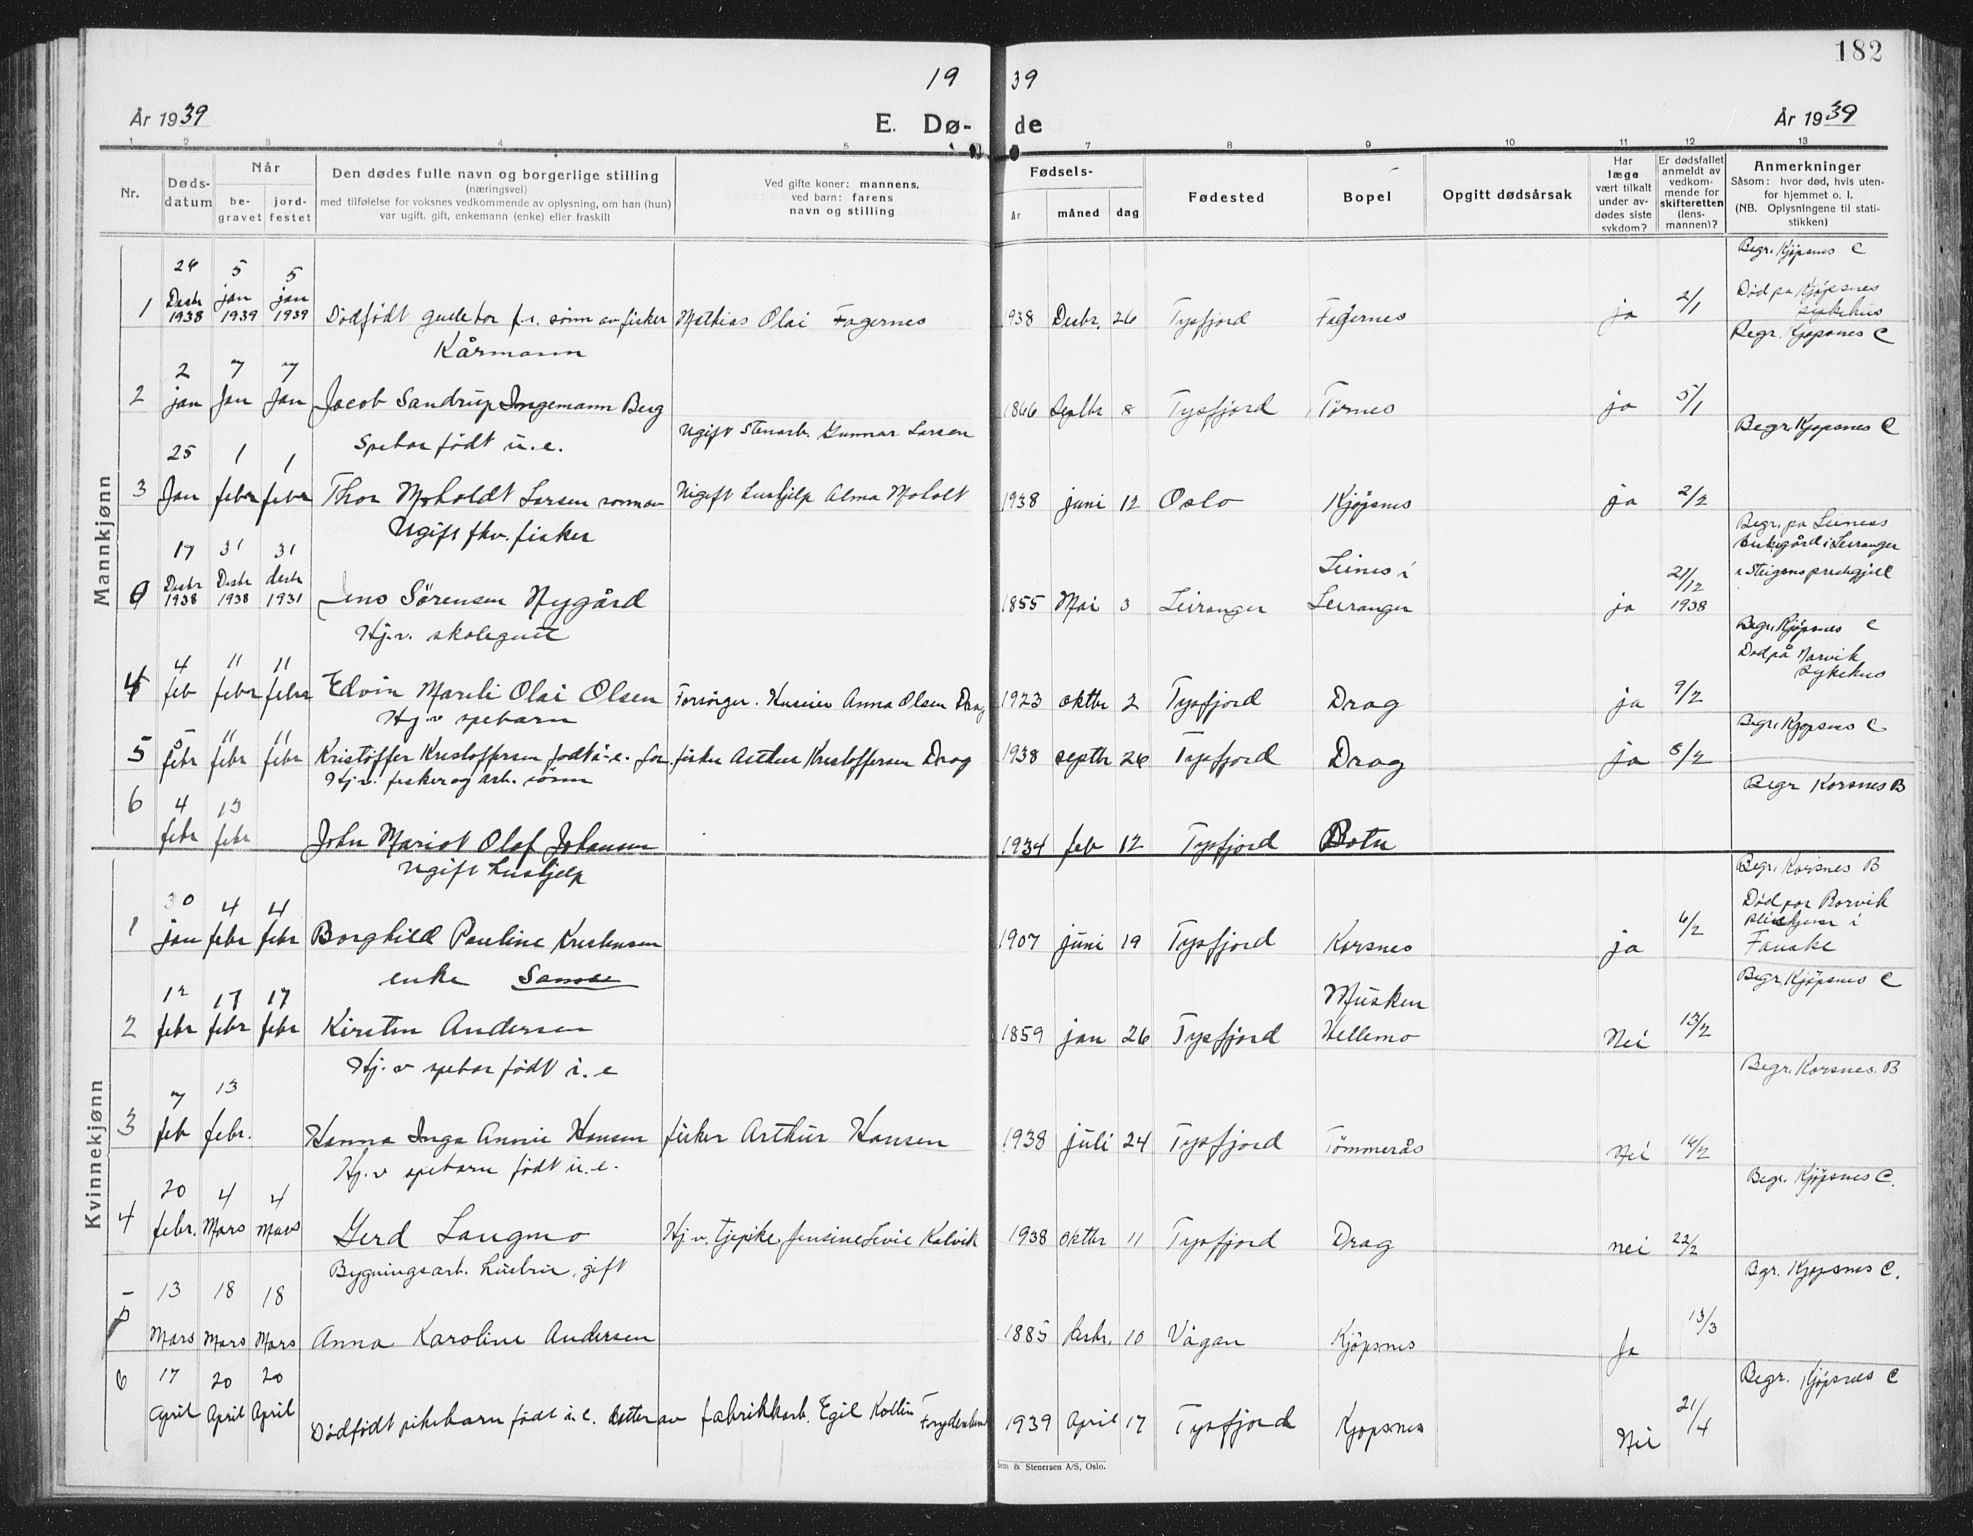 182
19 39
År 1939
E. Dø- de
År 1939
1 2 3 4 5 7 8 9 10 11 12 13
Nr.
Døds-
datum
Når
be-
gravet
jord-
festet
Den dødes fulle navn og borgerlige stilling
(næringsvei)
med tilføielse for voksnes vedkommende av oplysning, om han (hun)
var ugift, gift, enkemann (enke) eller fraskilt
Ved gifte koner: mannens,
ved barn: farens
navn og stilling
Fødsels-
år måned dag
Fødested
Bopel
Opgitt dødsårsak
Har
læge
vært tilkalt
under av-
dødes siste
sykdom?
Er dødsfallet
anmeldt av
vedkom-
mende for
skifteretten
(lens-
mannen)?
Anmerkninger
Såsom: hvor død, hvis uten-
for hjemmet o. l.
(NB. Oplysningene til stati-
stikken)
Mannkjønn
Begr. Kjöpsnes C
26 5 5
Desbr jan jan
1938 1939 1939
1 Dödfödt guttebar f.r. sönn av fisker Mathias Olai Fagernes 1938 Desbr. 26 Tysfjord Fagernes ja 2/1
Död på Kjöpsnes
sykehus
Kårmann
Begr. Kjöpsnes C
2 7 7
2 jan Jan Jan Jacob Sandrup Ingemann Berg 1866 Septbr 8 Tysfjord Törnes ja 5/1
Spebar födt u.e.
Ugift Stenarb. Gunnar Larsen
Begr. Kjöpsnes C
25 1 1
3 Jan febr febr Thor Moholdt Larsen sönn av Ugift hushjelp Alma Moholt 1938 juni 12 Oslo Kjöpsnes ja 2/2
Ugift fhv. fisker
17 31 31
Desbr Desbr desbr
1938 1938 1931
0 Jens Sörensen Nygård 1855 Mai 3 Leiranger Leines i
Leiranger ja 21/12
1938
Begr. på Leines
kirkegård i Leiranger
i Steigens prestegjell
Hj.v. skolegutt
4 11 11
4 feb febr febr Edvin Mareli Olai Olsen Forsörger. Husmor Anna Olsen Drag 1923 oktbr 2 Tysfjord Drag ja 9/2
Begr. Kjöpsnes C
Död på Narvik
Sykehus
Hj.v spebarn
5 11 11
5 febr febr febr Kristoffer Kristoffersen födt i.e. for. fisker Arthur Kristoffersen Drag 1938 septbr 26 Tysfjord Drag ja 8/2
Begr. Kjöpsnes C
Hj.v. fisker og arb. sönn
4 13
6 febr febr John Mariot Olaf Johansen 1934 feb 12 Tysfjord Botn
Begr Korsnes B
Kvinnekjønn
Ugift hushjelp
30 4 4
1 jan febr febr Borghild Pauline Kristensen 1907 juni 19 Tysfjord Korsnes ja 6/2
Begr. Korsnes B
Död på Rørvik
i
Fauske
enke Samme
12 17 17
2 febr febr febr Kirsten Andersen 1859 jan 26 Tysfjord Musken
Hellemo Nei 13/2
Begr. Kjöpsnes C
Hj.v spebar födt i.e
7 13
3 feb febr. Hanna Inga Annie Hansen fisker Arthur Hansen 1938 juli 24 Tysfjord Tömmerås Nei 14/2
Begr. Korsnes. B
Hj.v spebarn födt u.e.
20 4 4
4 febr. Mars Mars Gerd Langmo Hj.v. tjepike Jensine Sevie Kalvik 1938 oktbr 11 Tysfjord Drag nei 22/2
Begr. Kjöpsnes C.
Bygningsarb. hustru, gift
13 18 18
5 Mars Mars Mars Anna Karoline Andersen 1885 Desbr. 10 Vågan Kjöpsnes Ja 13/3
Bgr. Kjöpsnes C.
17 20 20
6 April April April Dödfödt pikebarn födt u.e. datter av fabrikkarb. Egil Kolbn 1939 April 17 Tysfjord Kjöpsnes Nei 21/4
Begr. Kjöpsnes C
Sem & Stenersen A/S, Oslo.